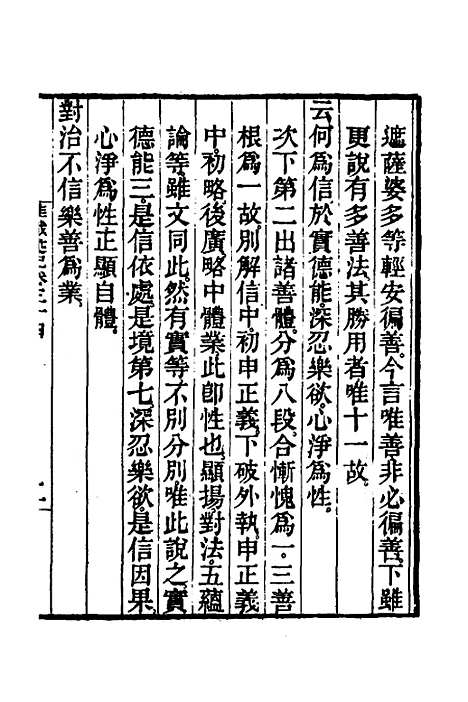 遮薩婆多等輕安徧善。今言唯善非必徧善。下雖
更說有多善法。其勝用者唯十一故。
云何爲信於實德能深忍樂欲。心淨爲性。
次下第二出諸善體。分爲八段。合慚愧爲一。三善
根爲一故。別解信中。初申正義。下破外執。申正義
中。初略。後廣。略中體業。此卽性也。顯揚對法。五蘊
論等。雖文同此。然有實等不別分別。唯此說之。實
德能三。是信依處。是境第七。深忍樂欲。是信因果。
心淨爲性。正顯自體。
對治不信樂善爲業。